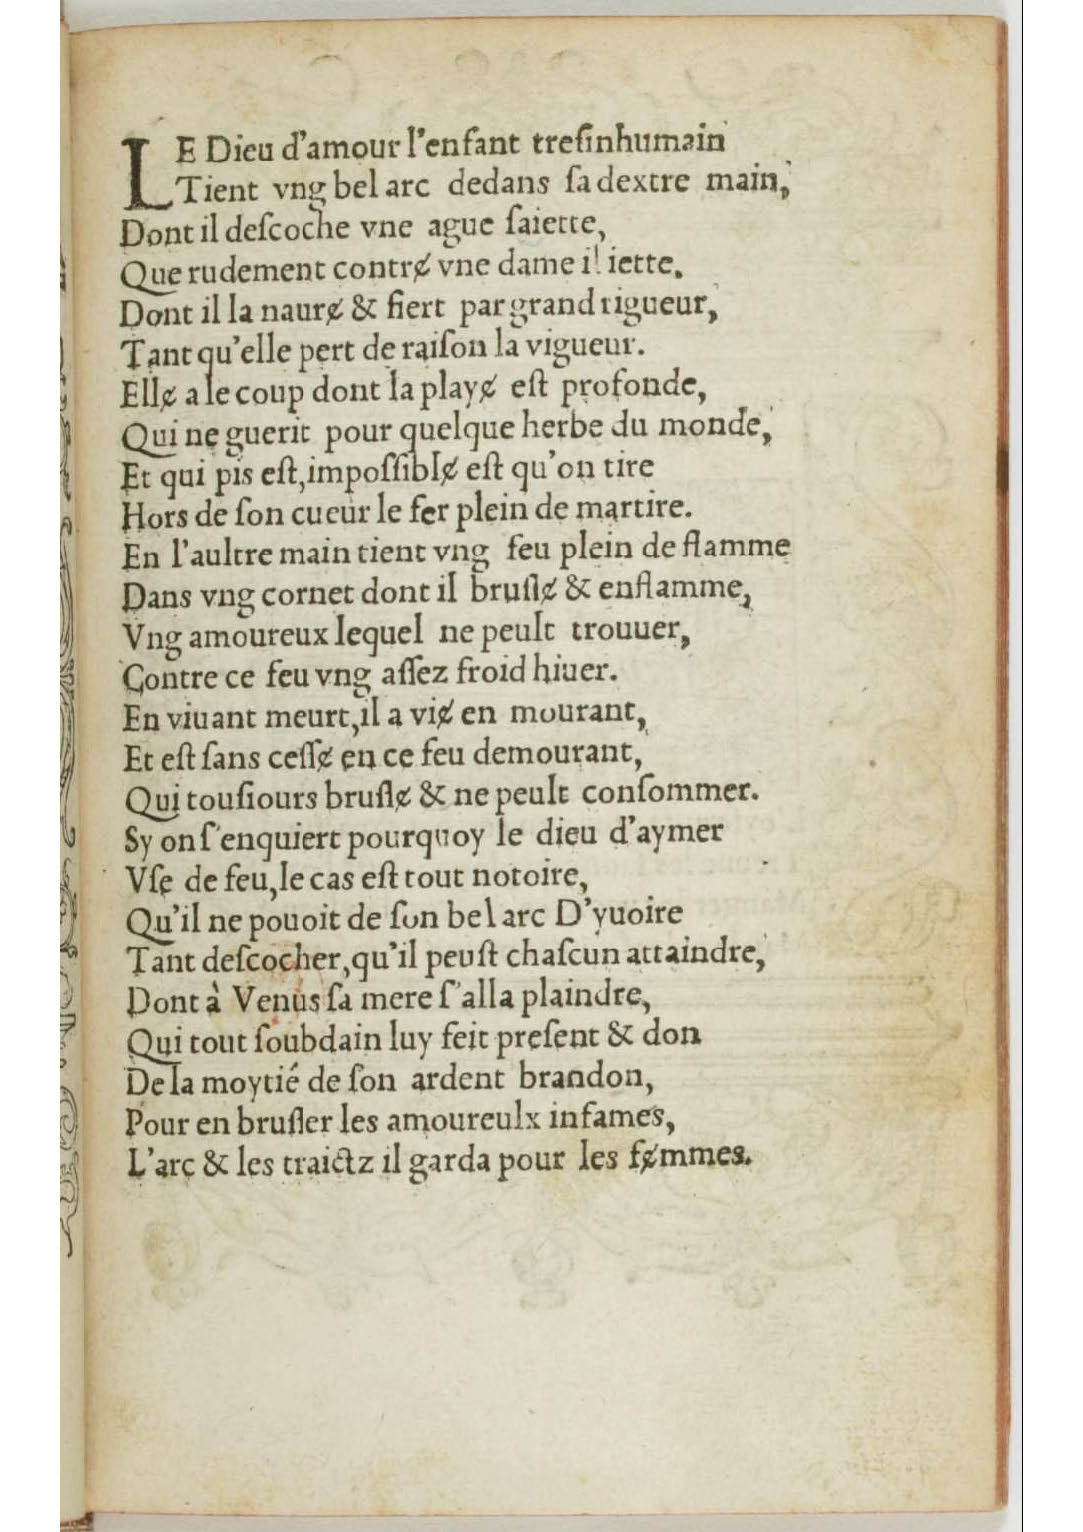 LE Dieu d'amour l'enfant tresinhumain
Tient vng bel arc dedans ſa dextre main,
Dont il deſcoche vne ague ſaiette,
Que rudement contrɇ vne dame il iette.
Dont il la naurɇ & fiert par grand rigueur,
Tant qu'elle pert de raiſon la vigueur.
Ellɇ a le coup dont la playɇ eſt profonde,
Qui ne guerit pour quelque herbe du monde,
Et qui pis eſt, impoſſiblɇ eſt qu'on tire
Hors de ſon cueur le fer plein de martire.
En l'aultre main tient vng feu plein de flamme
Dans vng cornet dont il bruſlɇ & enflamme,
Vng amoureux lequel ne peult trouuer,
Contre ce feu vng aſſez froid hiuer.
En viuant meurt, il a viɇ en mourant,
Et eſt ſans ceſſɇ en ce feu demourant,
Qui touſiours bruſlɇ & ne peult conſommer.
Sy on ſ'enquiert pourquoy le dieu d'aymer
Vſe de feu, le cas eſt tout notoire,
Qu'il ne pouoit de ſon bel arc D'yuoire
Tant deſcocher, qu'il peuſt chaſcun attaindre,
Dont à Venus ſa mere ſ'alla plaindre,
Qui tout ſoubdain luy feit preſent & don
De la moytié de ſon ardent brandon,
Pour en bruſler les amoureulx infames,
L'arc & les traictz il garda pour les fɇmmes.